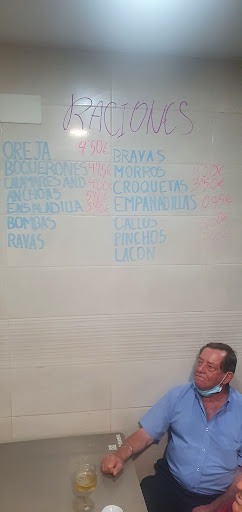 RACIONES
OREJA 4'50€
BOQUERONES
ANCHOAS
ENSALADILLA
BOMBAS
RAVAS
BRAVAS
MORROS
CROQUETAS
EMPANADILLAS
CALLOS
PINCHOS
LACON